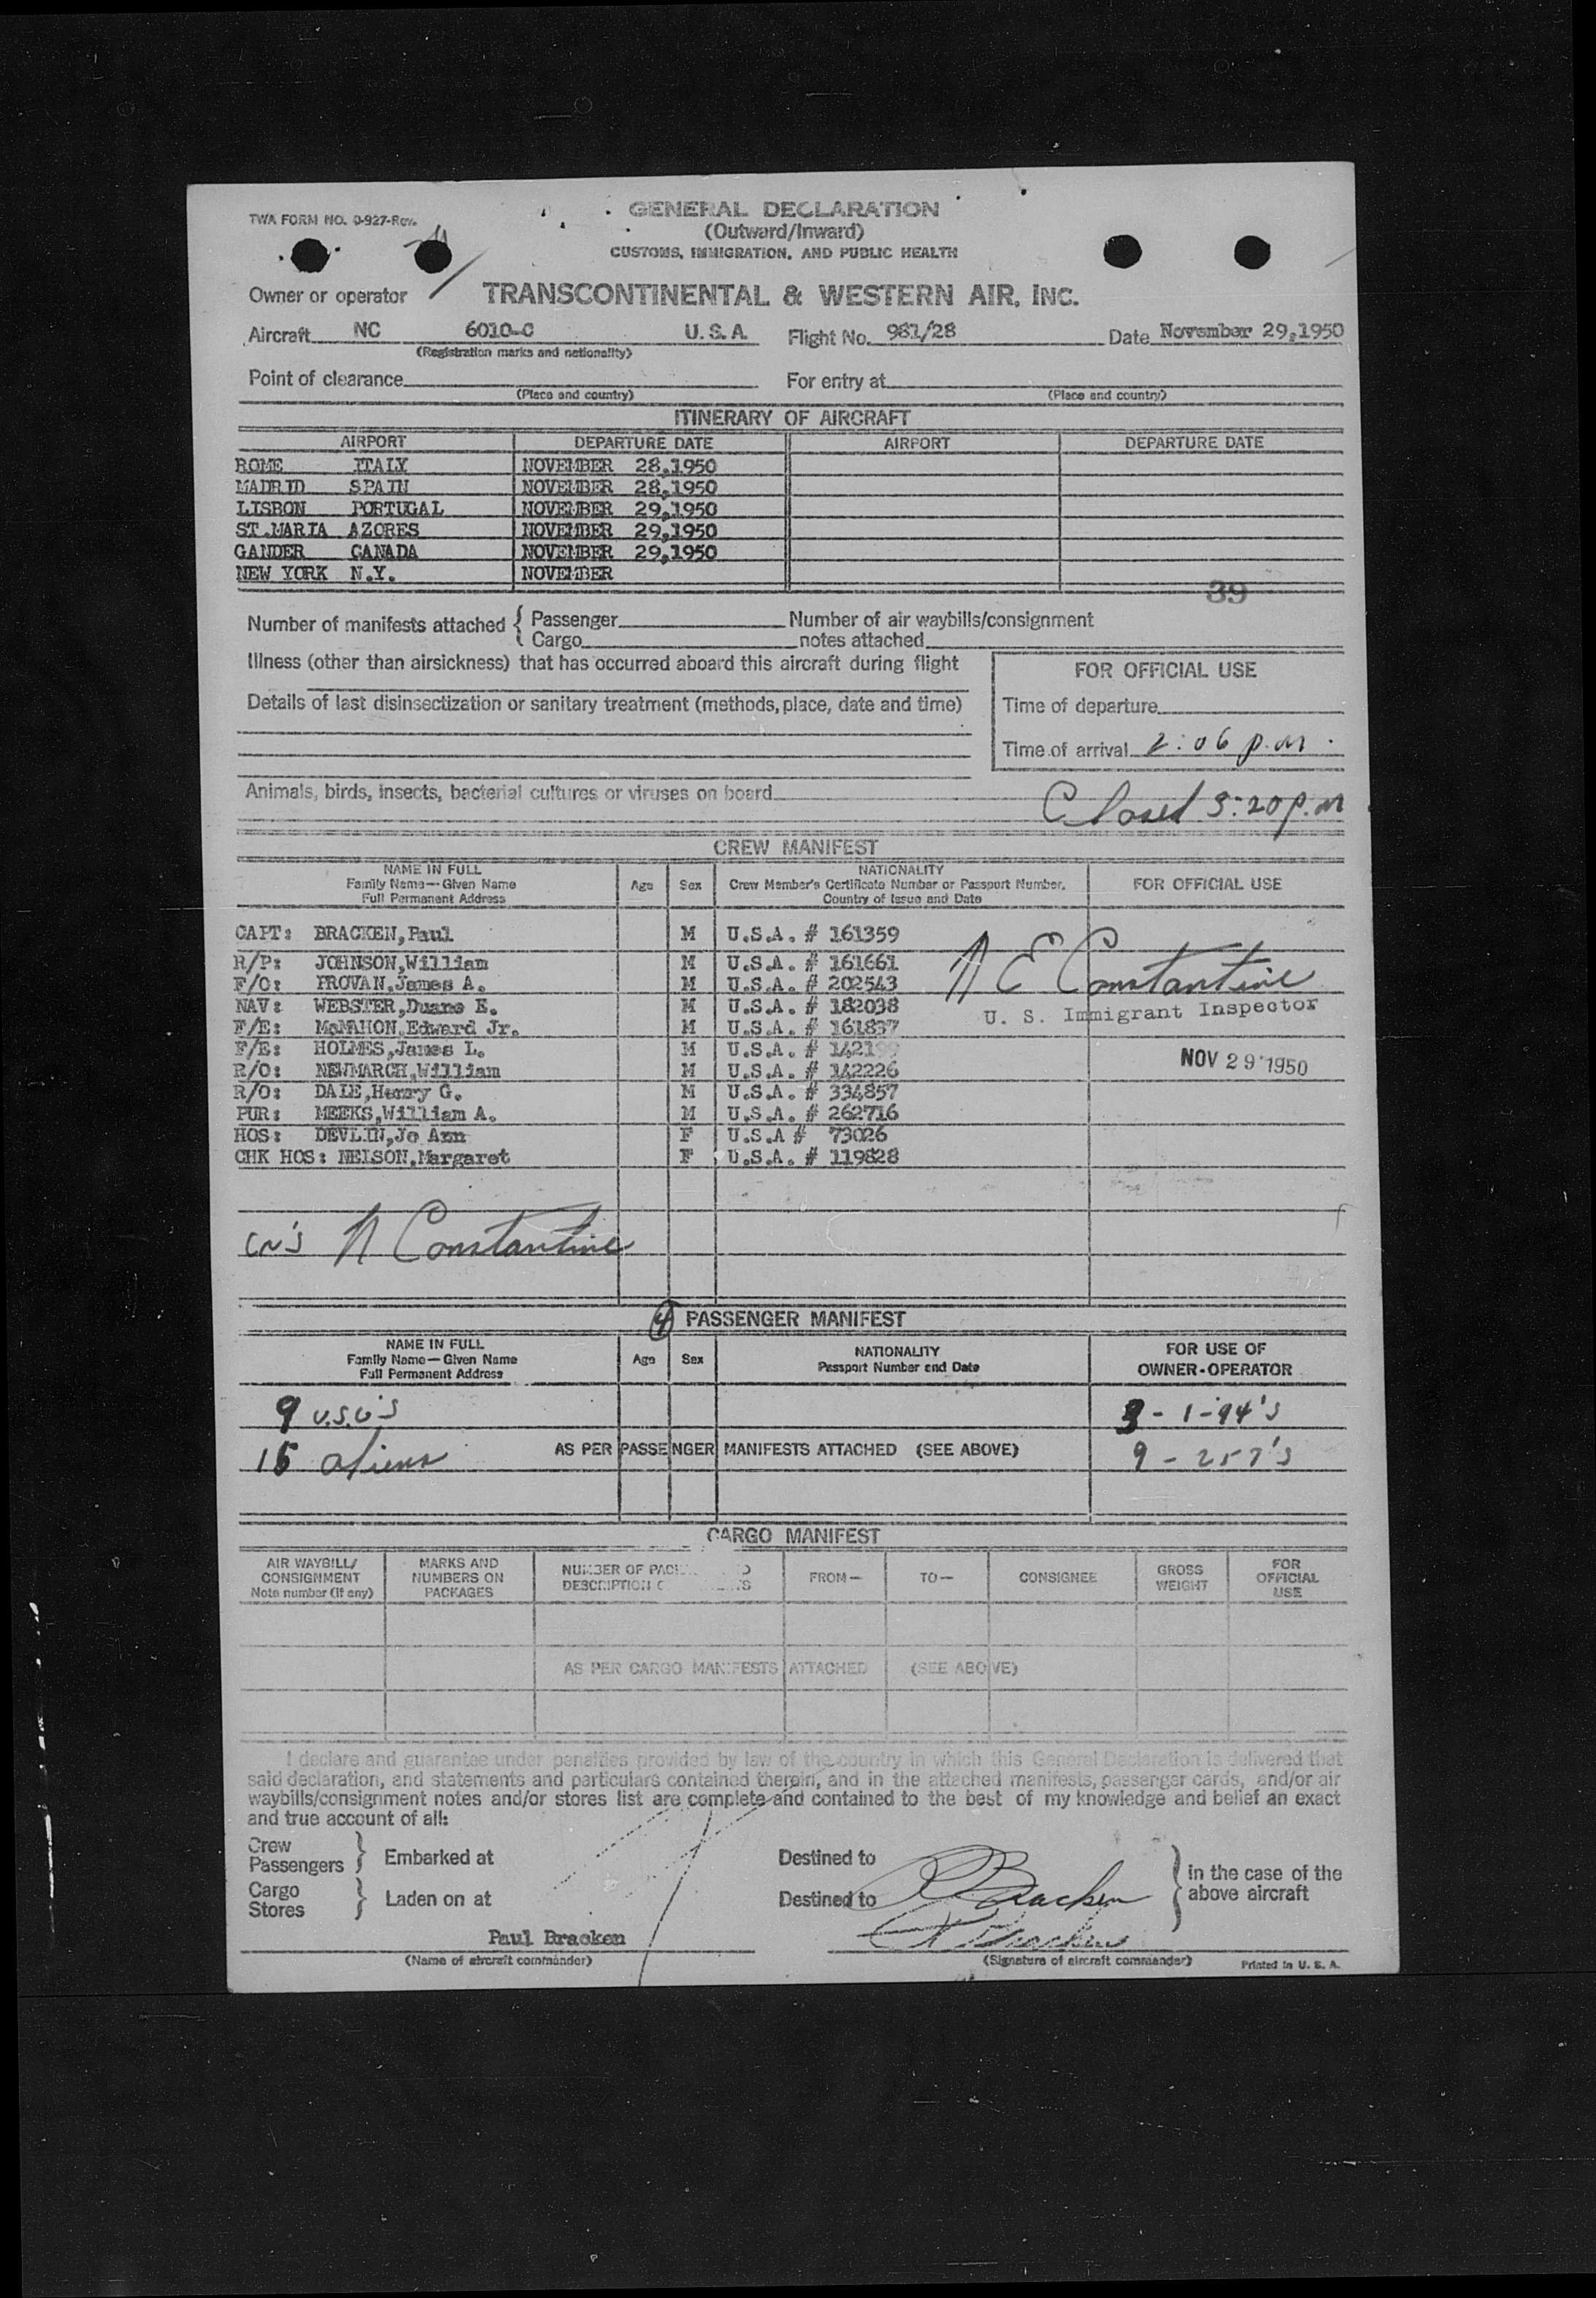 TWA FORM NO. 0-927-Rev.
GENERAL DECLARATION
(Outward/Inward)
CUSTOMS, IMMIGRATION, AND PUBLIC HEALTH
Owner or operator TRANSCONTINENTAL & WESTERN AIR, INC.
Aircraft NC 6010-C U.S.A. Flight No. 981/28 Date November 29,1950
(Registration marks and nationality)
Point of clearance For entry at
(Place and country) (Place and country)
ITINERARY OF AIRCRAFT
AIRPORT DEPARTURE DATE AIRPORT DEPARTURE DATE
ROME ITALY NOVEMBER 28,1950
MADRID SPAIN NOVEMBER 28,1950
LISBON PORTUGAL NOVEMBER 29,1950
ST.MARIA AZORES NOVEMBER 29,1950
GANDER CANADA NOVEMBER 29,1950
NEW YORK N.Y. NOVEMBER
39
Number of manifests attached { Passenger Number of air waybills/consignment
Cargo notes attached
Illness (other than airsickness) that has occurred aboard this aircraft during flight
FOR OFFICIAL USE
Details of last disinsectization or sanitary treatment (methods, place, date and time)
Time of departure
Time of arrival 2:06 p.m.
Animals, birds, insects, bacterial cultures or viruses on board
Closed 3:20 p.m
CREW MANIFEST
NAME IN FULL
Family Name—Given Name
Full Permanent Address
Age Sex
NATIONALITY
Crew Member's Certificate Number or Passport Number,
Country of Issue and Date
FOR OFFICIAL USE
CAPT: BRACKEN,Paul M U.S.A. # 161359
R/P: JOHNSON,William M U.S.A. # 161661
F/O: PROVAN,James A. M U.S.A. # 202543
NAV: WEBSTER,Duane E. M U.S.A. # 182038
F/E: McMAHON,Edward Jr. M U.S.A. # 161837
F/E: HOLMES,James L. M U.S.A. #
R/O: NEWMARCH,William M U.S.A. # 142226
R/O: DALE,Henry G. M U.S.A. # 334857
PUR: MEEKS,William A. M U.S.A. # 262716
HOS: DEVLIN,Jo Ann F U.S.A # 73026
CHK HOS: NELSON,Margaret F U.S.A. # 119828
N E Constantine
U. S. Immigrant Inspector
NOV 29 1950
N Constantine
4 PASSENGER MANIFEST
NAME IN FULL
Family Name—Given Name
Full Permanent Address
Age Sex
NATIONALITY
Passport Number and Date
FOR USE OF
OWNER-OPERATOR
9 U.S.C's 3 - 1-94's
15 aliens AS PER PASSENGER MANIFESTS ATTACHED (SEE ABOVE) 9 - 257's
CARGO MANIFEST
AIR WAYBILL/
CONSIGNMENT
Note number (if any)
MARKS AND
NUMBERS ON
PACKAGES
NUMBER OF
DESCRIPTION
FROM— TO— CONSIGNEE
GROSS
WEIGHT
FOR
OFFICIAL
USE
AS PER CARGO MANIFESTS ATTACHED (SEE ABOVE)
I declare and guarantee under penalties provided by law of the country in which this General Declaration is delivered that
said declaration, and statements and particulars contained therein, and in the attached manifests, passenger cards, and/or air
waybills/consignment notes and/or stores list are complete and contained to the best of my knowledge and belief an exact
and true account of all:
Crew
Passengers } Embarked at Destined to
Cargo
Stores } Laden on at Destined to
P Bracken
} in the case of the
above aircraft
Paul Bracken P Bracken
(Name of aircraft commander) (Signature of aircraft commander) Printed in U. S. A.